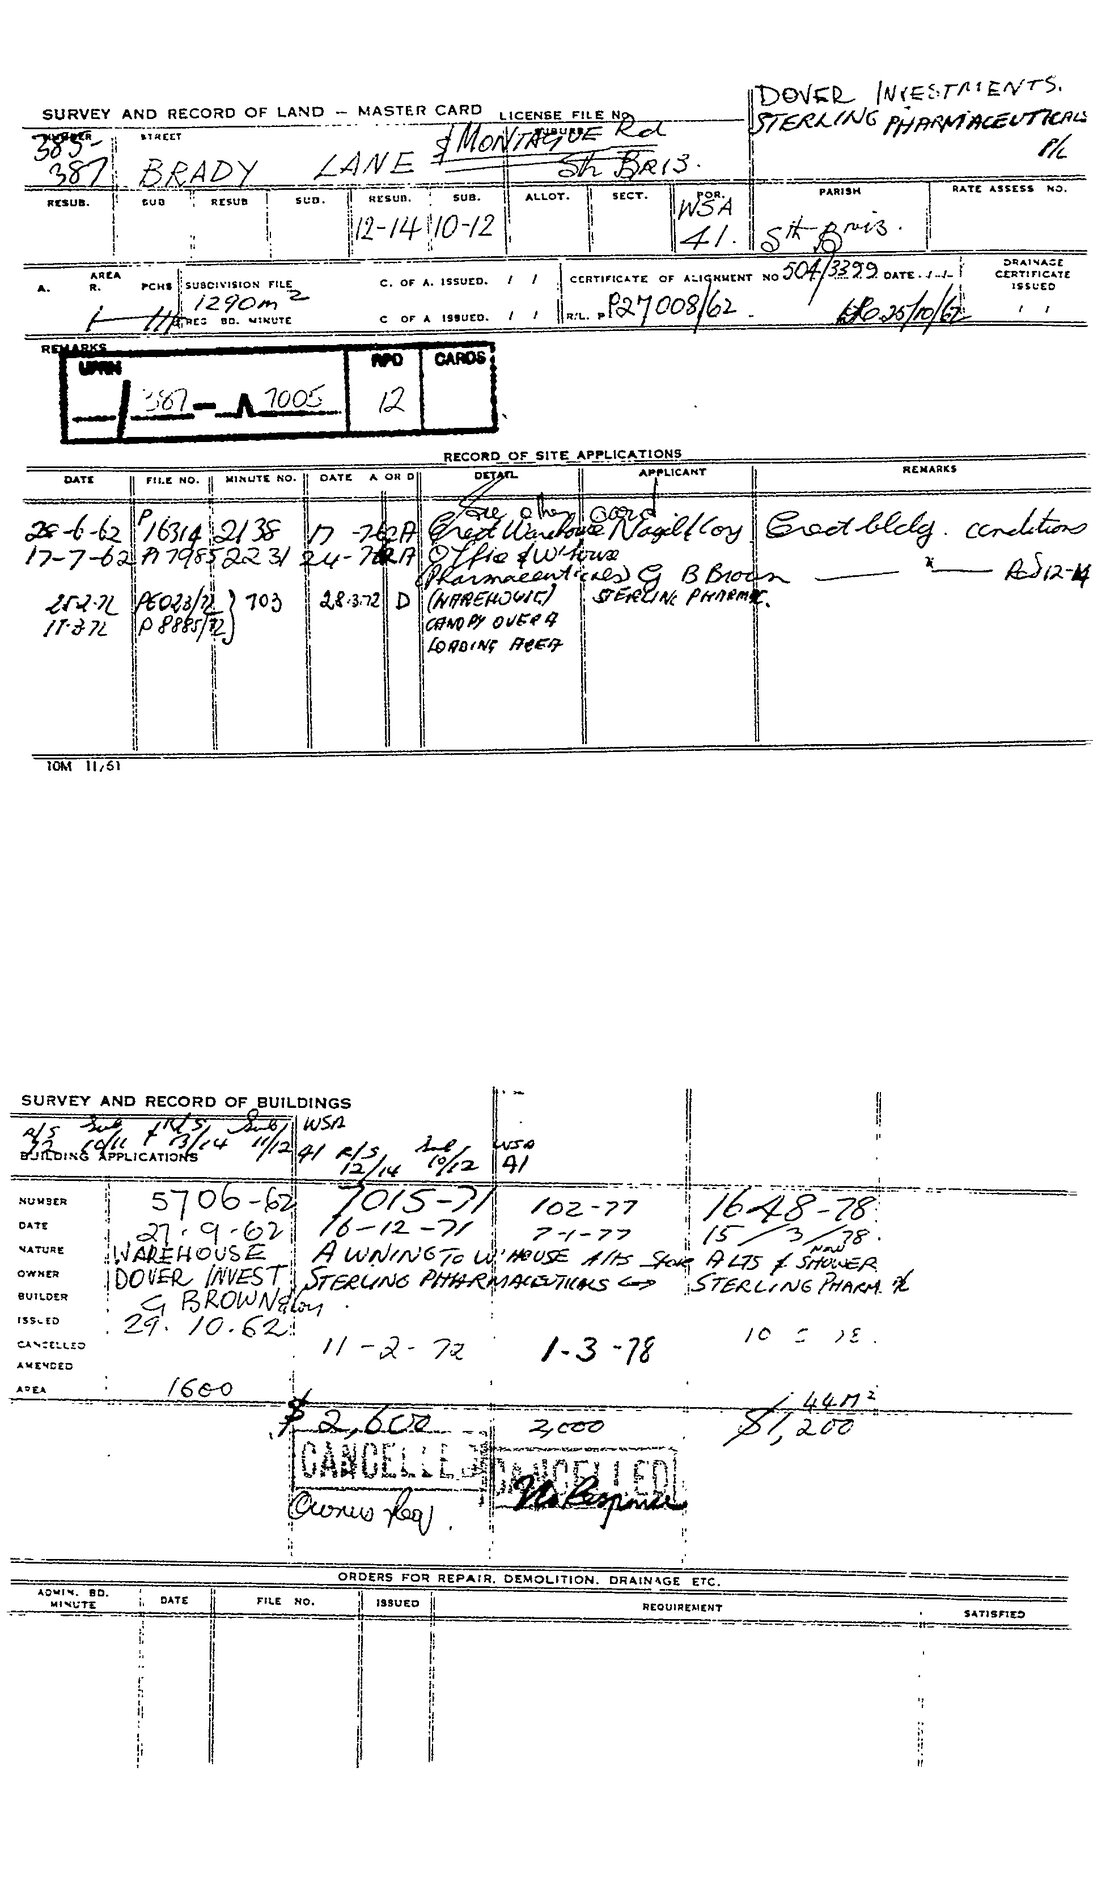 DOVER INVESTMENTS.
SURVEY AND RECORD OF LAND — MASTER CARD LICENSE FILE No.
STERLING PHARMACEUTICALS
P/L
NUMBER STREET SUBURB
385- & MONTAGUE Rd
387 BRADY LANE Sth BRIS.
RESUB. SUB RESUB SUB. RESUB. SUB. ALLOT. SECT. POR. PARISH RATE ASSESS NO.
12-14 10-12 WSA 41. Sth Bris.
AREA
A. R. PCHS SUBDIVISION FILE C. OF A. ISSUED. / / CERTIFICATE OF ALIGNMENT NO 504/3399 DATE . /. ./. DRAINAGE CERTIFICATE ISSUED
1290m2
REG BD. MINUTE C OF A ISSUED. / / R/L. P P27008/62 25/10/62 / /
REMARKS
UPRN RPD CARDS
/ 387 — A 7005 12
RECORD OF SITE APPLICATIONS
DATE FILE NO. MINUTE NO. DATE A OR D DETAIL APPLICANT REMARKS
See other card
28-6-62 P16314 2138 17-7-62 A Erect Warehouse Nagil & Coy Erect bldg. conditions
17-7-62 A7985 2231 24-7-62 A Office & W'house
(Pharmaceuticals) G B Brown
25.2.72 P6023/72 } 703 28.3.72 D (WAREHOUSE) STERLING PHARMAC.
15.3.72 P8885/72 CANOPY OVER A
LOADING AREA
10M 11/61
SURVEY AND RECORD OF BUILDINGS
R/S Sub & R/S Sub WSA
10/11 13/14 11/12 41 R/S 12/14 Sub 10/12 WSA 41
BUILDING APPLICATIONS
NUMBER 5706-62 7015-71 102-77 1648-78
DATE 27.9.62 16-12-71 7-1-77 15/3/78
NATURE WAREHOUSE AWNING TO W'HOUSE Alts Stor ALTS & NEW SHOWER
OWNER DOVER INVEST STERLING PHARMACEUTICALS STERLING PHARM. P/L
BUILDER G BROWN & Coy
ISSUED 29.10.62
CANCELLED 11-2-72 1-3-78
AMENDED
AREA 1600
44M2
$ 2,600 2,000 $1,200
CANCELLED CANCELLED
Owners Req. No Response
ORDERS FOR REPAIR, DEMOLITION, DRAINAGE ETC.
ADMIN. BD. MINUTE DATE FILE NO. ISSUED REQUIREMENT SATISFIED